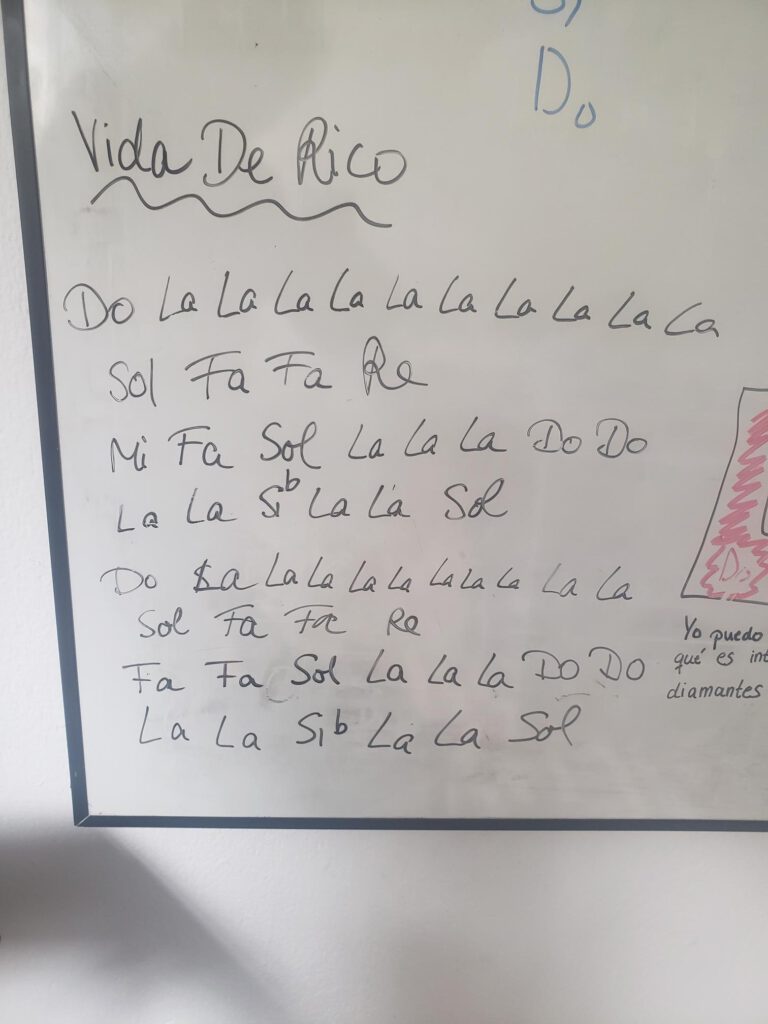 Do
Vida De Rico
Do La La La La La La La La La La
Sol Fa Fa Re
Mi Fa Sol La La La Do Do
La La Si b La La Sol
Do La La La La La La La La La La
Sol Fa Fa Re
Fa Fa Sol La La La Do Do
La La Si b La La Sol
Do
Yo puedo
qué es
diamantes